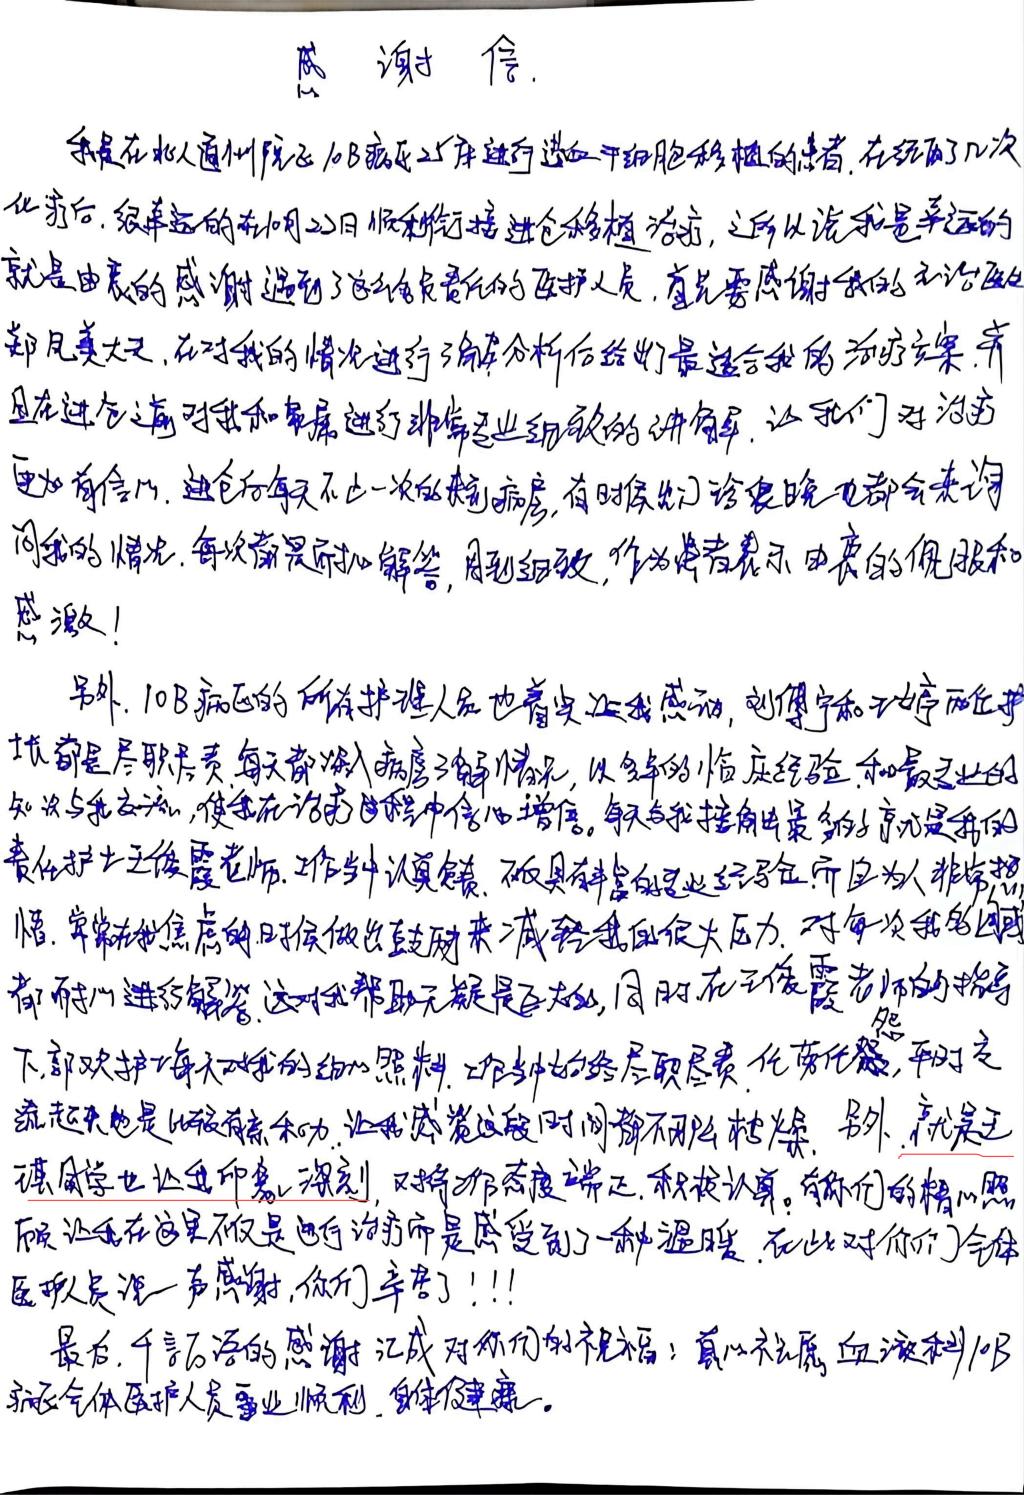 感谢信.
我是在北人通州院区10B病区25床进行造血干细胞移植的患者.在经历了几次
化疗后.很幸运的在10月23日顺利衔接进仓移植治疗,之所以说我是幸运的
就是由衷的感谢遇到了这么负责任的医护人员.首先要感谢我的主治医生
郑凤美大夫.在对我的情况进行了解分析后给出了最适合我的治疗方案.并
且在进仓之前对我和家属进行非常专业细致的讲解.让我们对治疗
更加有信心.进仓后每天不止一次的来到病房,有时候出门诊很晚也都会来询
问我的情况.每次都是耐心解答,周到细致,作为患者表示由衷的佩服和
感激!
另外.10B病区的所有护理人员也着实让我感动,刘博宁和 婷两位护
士长都是尽职尽责.每天都深入病房了解情况,以多年的临床经验和最专业的
知识与我交流,使我在治疗过程中信心增倍。每天与我接触最多的就是我的
责任护士王俊霞老师.工作当中认真负责.不仅具有丰富的专业经验而且为人非常热
情.常常在我焦虑的时候做出鼓励来减轻我的很大压力.对每次我的困惑
都耐心进行解答.这对我帮助无疑是巨大的,同时在王俊霞老师的指导
下,郭欢护士每天对我的细心照料.工作当中始终尽职尽责.任劳任怨,平时交
流起来也是比较有亲和力.让我感觉这段时间都不那么枯燥.另外.就是王
琪同学也让我印象深刻,对待工作态度端正.积极认真。有你们的精心照
顾让我在这里不仅是进行治疗而是感受到了一种温暖.在此对你们全体
医护人员说一声感谢,你们辛苦了!!!
最后.千言万语的感谢汇成对你们的祝福:真心祝愿血液科10B
病区全体医护人员事业顺利.身体健康。